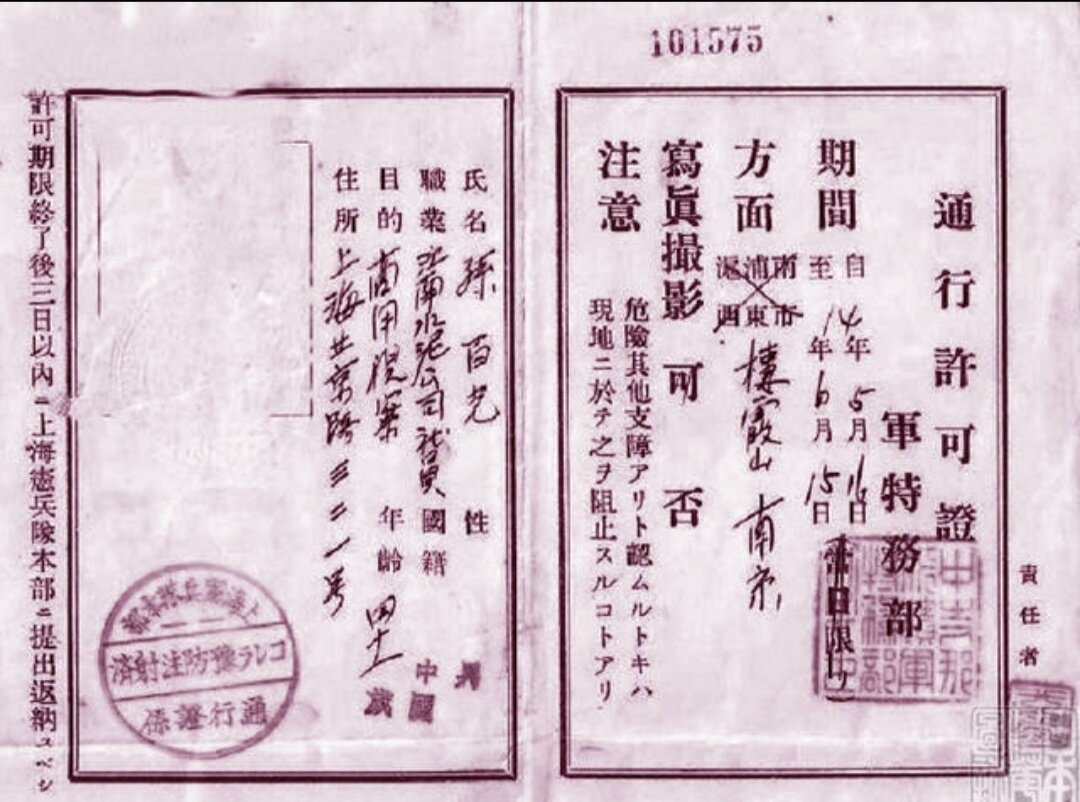 101575
通行許可證
軍特務部
期間 自 14年5月16日
至 14年6月15日
當日限リ
方面 南市
浦東
滬西
棲霞山 南京
寫眞撮影可否
注意 危險其他支障アリト認ムルトキハ
現地ニ於テ之ヲ阻止スルコトアリ
責任者
氏名 孫百 性 男
職業 江南水泥公司職員 國籍 中國
目的 商用視察 年齡 四十 歲
住所 上海北京路三二一号
上海憲兵隊本部
コレラ豫防注射濟
通行證係
許可期限終了後三日以內ニ上海憲兵隊本部ニ提出返納スベシ